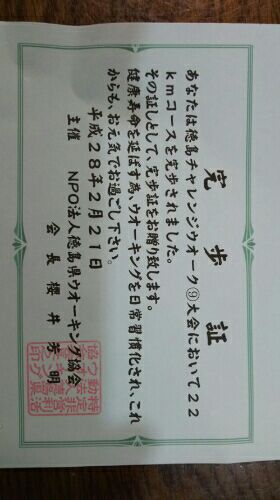 完歩証
あなたは徳島チャレンジウオーク⑨大会において22
kmコースを完歩されました。
その証しとして、完歩証をお贈り致します。
健康寿命を延ばす為、ウオーキングを日常習慣化され、これ
からも、お元気でお過ごし下さい。
平成28年2月21日
主催 NPO法人徳島県ウオーキング協会
会長 櫻井芳明
特定非営利活
動法人徳島県
ウオーキング
協会之印